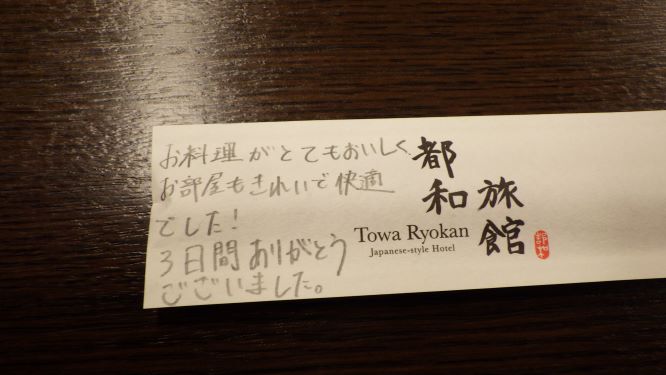 お料理がとてもおいしく、
お部屋もきれいで快適
でした!
3日間ありがとう
ございました。
都和
旅館
Towa Ryokan
Japanese-style Hotel